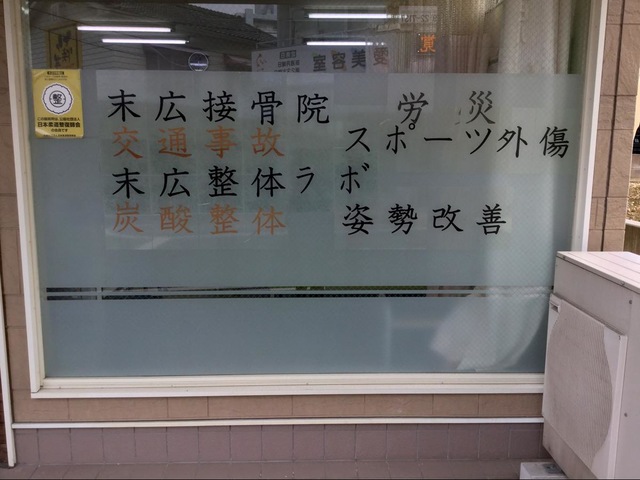 末広接骨院 労災
交通事故 スポーツ外傷
末広整体ラボ
炭酸整体 姿勢改善
整
日本柔道整復師会
室容美愛